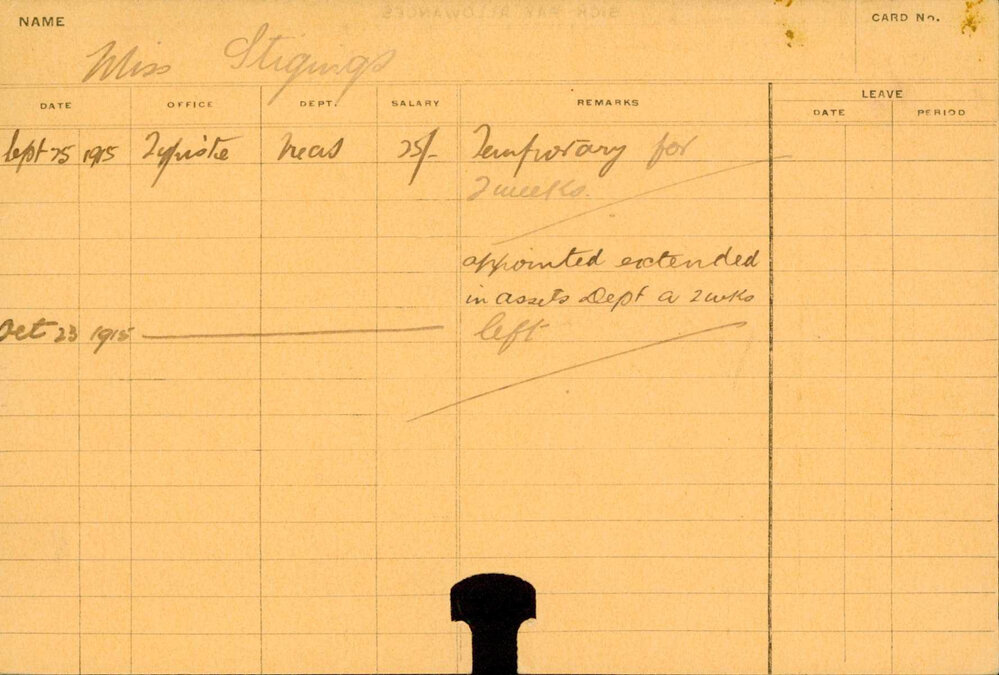 NAME
CARD No.
Miss Stigings
DATE OFFICE DEPT. SALARY REMARKS LEAVE
DATE PERIOD
Sept 25 1915 Typiste 25/- Temporary for
2 weeks.
appointed extended
in assets Dept a 2 wks
Oct 23 1915 left